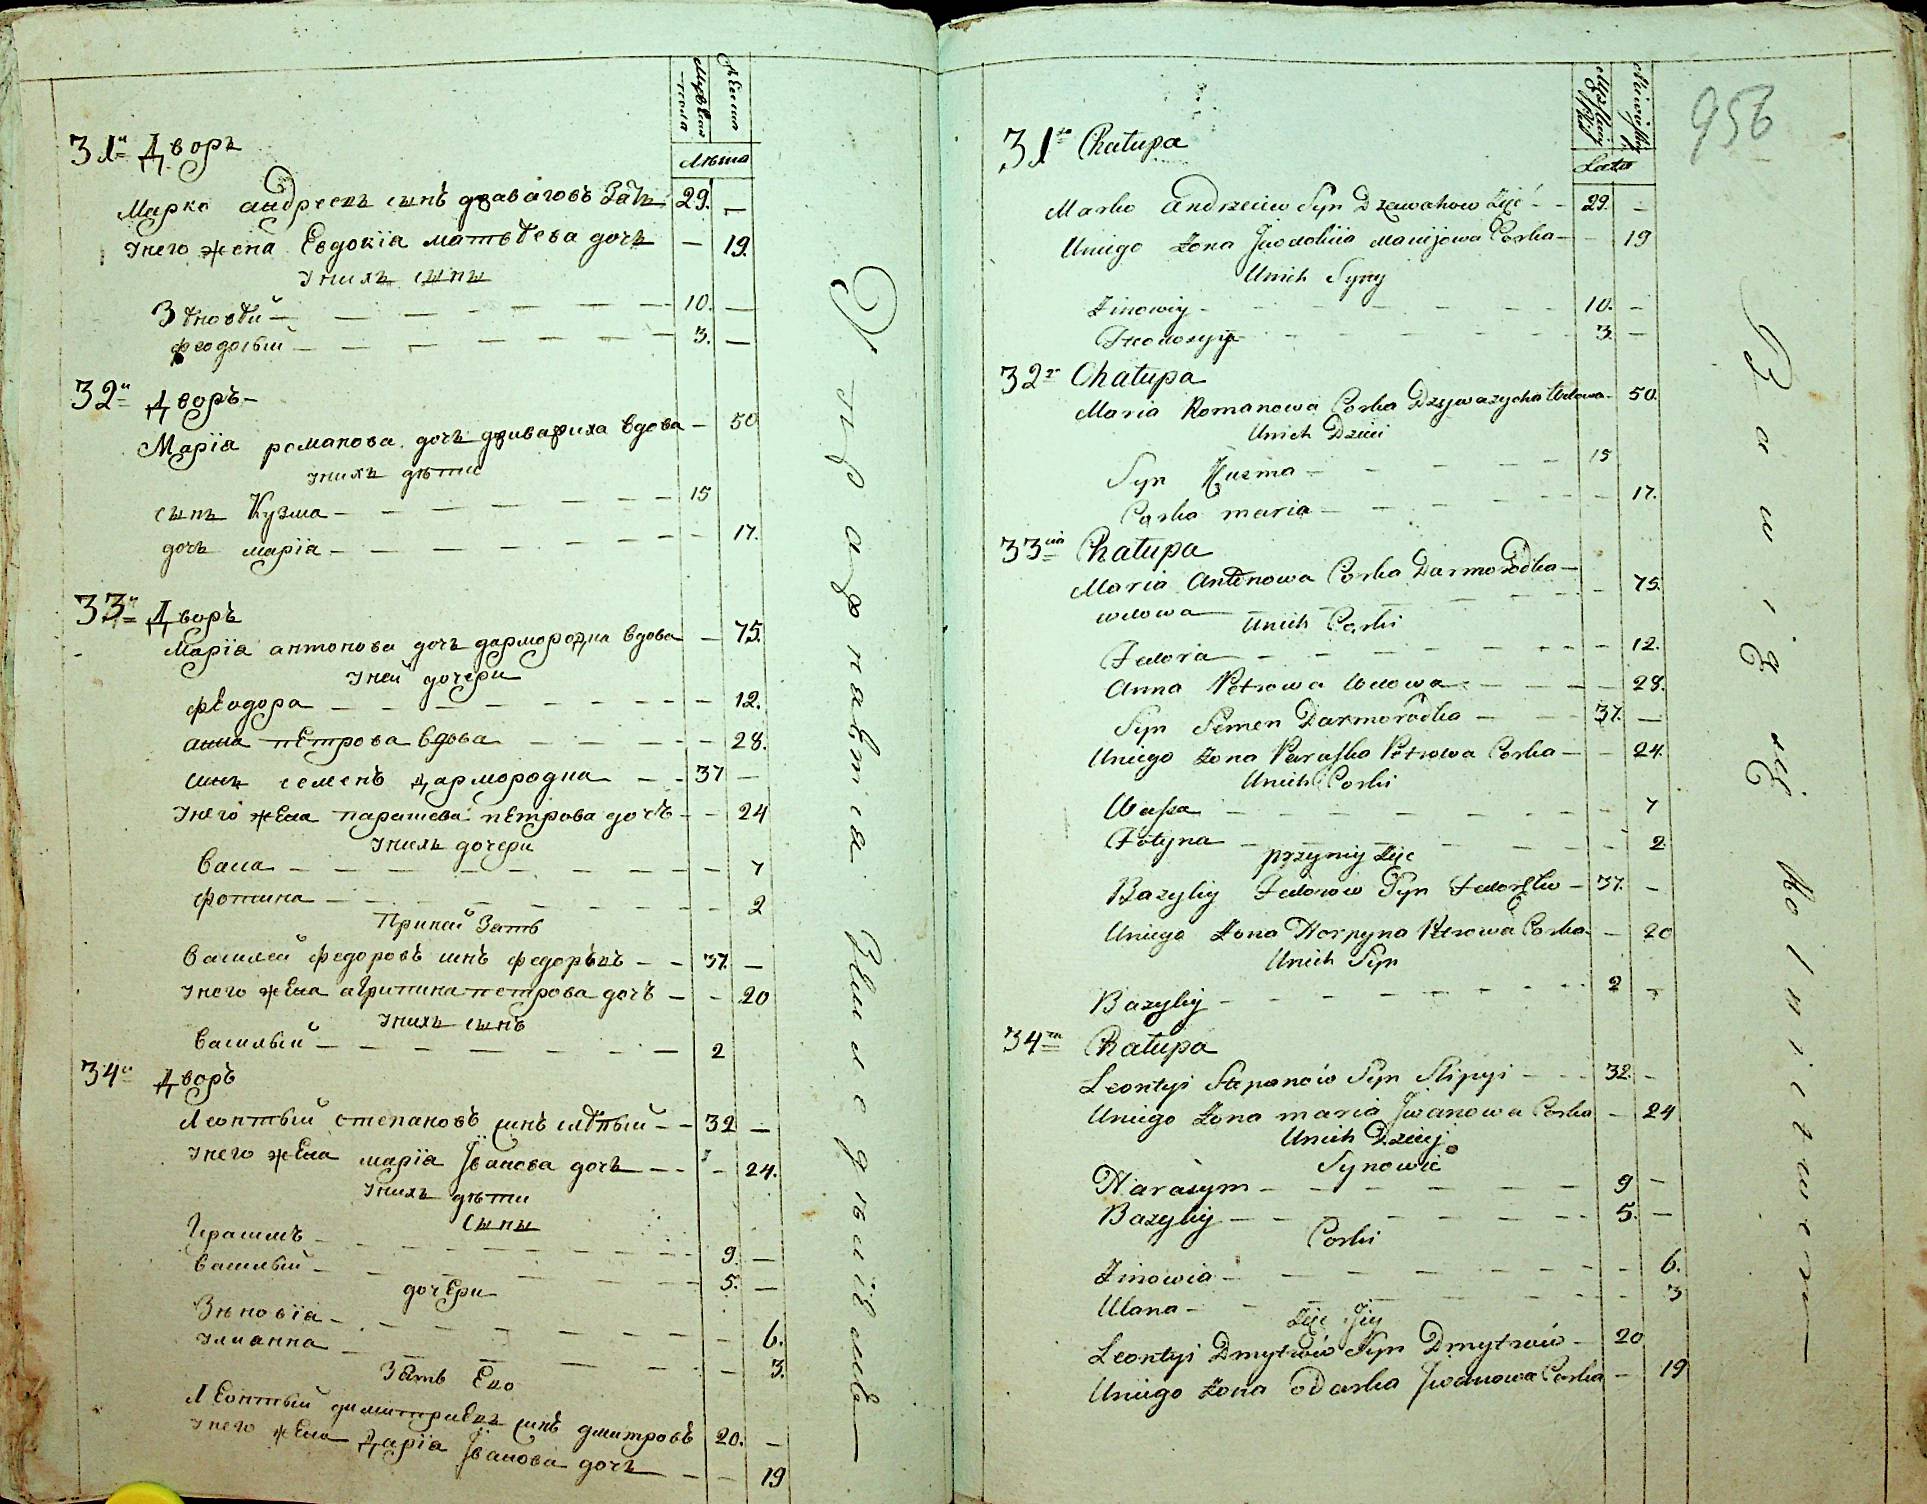 Мужеска пола
Женска
Лѣта
31й Дворъ
Марко андреевъ сынъ дзваговъ Зять 29. —
Унего жена Евдокіа матвѣева дочь — 19.
Унихъ сыны
Зѣновѣй — 10. —
феодосый — 3. —
32й Дворъ —
Маріа романова дочь дзивазиха вдова — 50
Унихъ дѣти
сынъ Кузма — 15
дочь маріа — 17.
33й Дворъ
Маріа антонова дочь дармородка вдова — 75.
Уней дочери
феодора — 12.
анна петрова вдова — 28.
синъ семенъ дармородка — 37 —
Унего жена парасева петрова дочь — 24
Унихъ дочери
васа — 7
фотина — 2
При ней Зять
василей федоровъ синъ федоръкъ — 37. —
Унего жена агрипина петрова дочь — 20
Унихъ сынъ
василый — 2
34й Дворъ
Леонтый степановъ синъ слѣпый — 32 —
Унего жена маріа Іванова дочь — 24.
Унихъ дѣти
сыны
Герасимъ — 9. —
василый — 5. —
дочери
Зѣновіа — 6.
Улианна — 3.
Зять Ево
Леонтый димитриевъ синъ дмитровъ 20. —
Унего жена Даріа Іванова дочь — 19
956
Lata
31a Chałupa
Marko Andrzeiew Syn Dzawahow Zięć — 29. —
Uniego Żona Jwdokiia Mawijowa Corka — 19
Unich Syny
Zinowiy — 10. —
Feodosyy — 3. —
32a Chałupa
Maria Romanowa Corka Dzywazycha Wdowa — 50.
Unich Dzieci
Syn Kuzma — 15
Corka maria — 17.
33cia Chałupa
Maria Antonowa Corka Darmorodka —
wdowa — 75.
Unich Corki
Fedora — 12.
Anna Petrowa Wdowa — 28.
Syn Semen Darmorodka — 37. —
Uniego Żona Paraska Petrowa Corka — 24.
Unich Corki
Wassa — 7
Fotyna — 2
przyniy Zięć
Bazyliy Fedorow Syn Fedorko — 37. —
Uniego Żona Horpyna Petrowa Corka — 20
Unich Syn
Bazyliy — 2 —
34ta Chałupa
Leontyi Stepanow Syn Slipyi — 32. —
Uniego Żona maria Jwanowa Corka — 24
Unich Dzieci
Synowie
Harasym — 9 —
Bazyliy — 5. —
Corki
Zinowia — 6.
Ulana — 3
Zięć Jiy
Leontyi Dmytrów Syn Dmytrów — 20
Uniego Żona Odarka Jwanowa Corka — 19